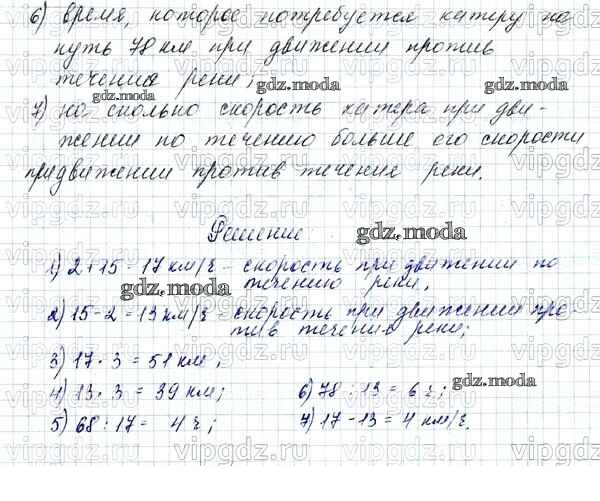 6) время, которое потребуется катеру на
путь 78 км при движении против
течения реки;
7) на сколько скорость катера при дви-
жении по течению больше его скорости
при движении против течения реки.
Решение:
1) 2+15 = 17 км/ч - скорость при движении по
течению реки,
2) 15-2 = 13 км/ч - скорость при движении про-
тив течения реки;
3) 17 · 3 = 51 км,
4) 13 · 3 = 39 км; 6) 78 : 13 = 6 ч;
5) 68 : 17 = 4 ч; 7) 17-13 = 4 км/ч.
gdz.moda
gdz.moda
gdz.moda
gdz.moda
gdz.moda
gdz.moda
gdz.moda
vipgdz.ru